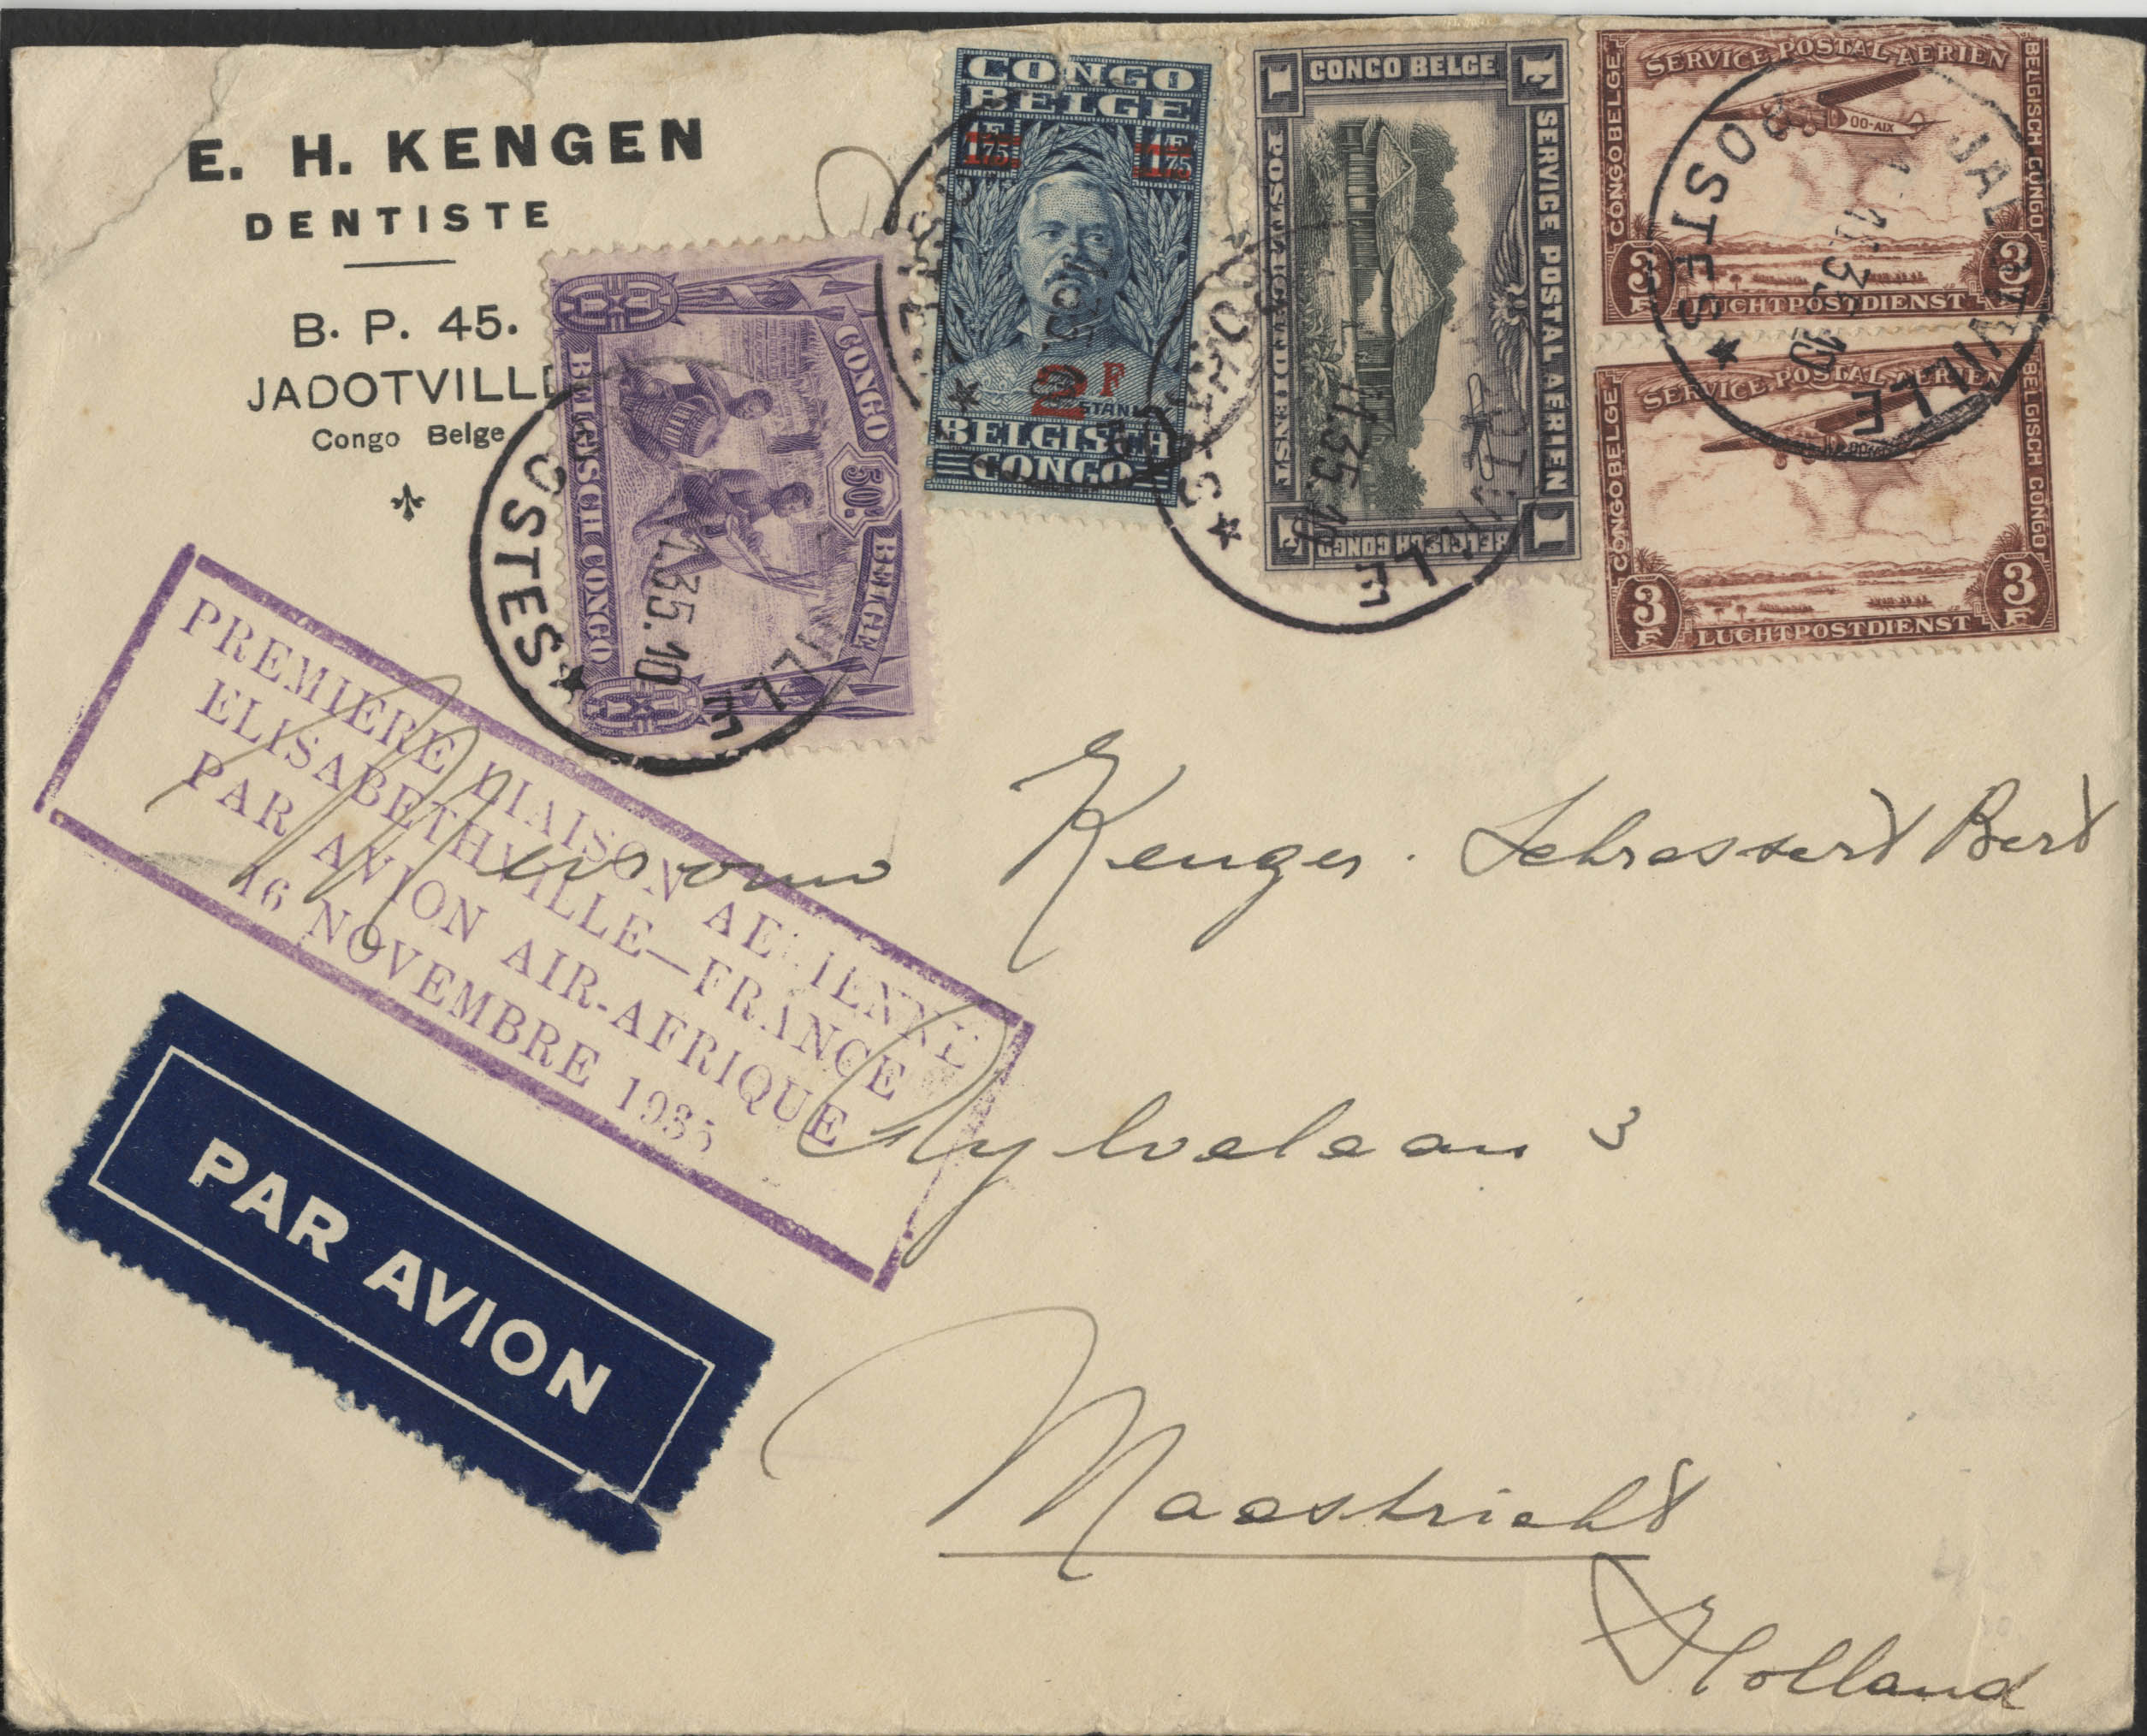 E. H. KENGEN
DENTISTE
B. P. 45.
JADOTVILLE
Congo Belge
CONGO BELGE
50c
BELGISCH CONGO
CONGO
BELGE
1F75 1F75
2F
STAN
BELGISCH
CONGO
1 CONGO BELGE F
SERVICE POSTAL AERIEN
POSTLUCHTDIENST
1F BELGISCH CONGO 1
SERVICE POSTAL AERIEN
CONGO BELGE
BELGISCH CONGO
OO-AIX
3F 3F
LUCHTPOSTDIENST
SERVICE POSTAL AERIEN
CONGO BELGE
BELGISCH CONGO
3F 3F
LUCHTPOSTDIENST
VILLE
POSTES
1.35.10
VILLE
11.35.10
JADOTVILLE
POSTES
PREMIERE LIAISON AERIENNE
ELISABETHVILLE—FRANCE
PAR AVION AIR-AFRIQUE
16 NOVEMBRE 1935
Mevrouw Kengen. Schressert Bert
3
Maastricht
Holland
PAR AVION